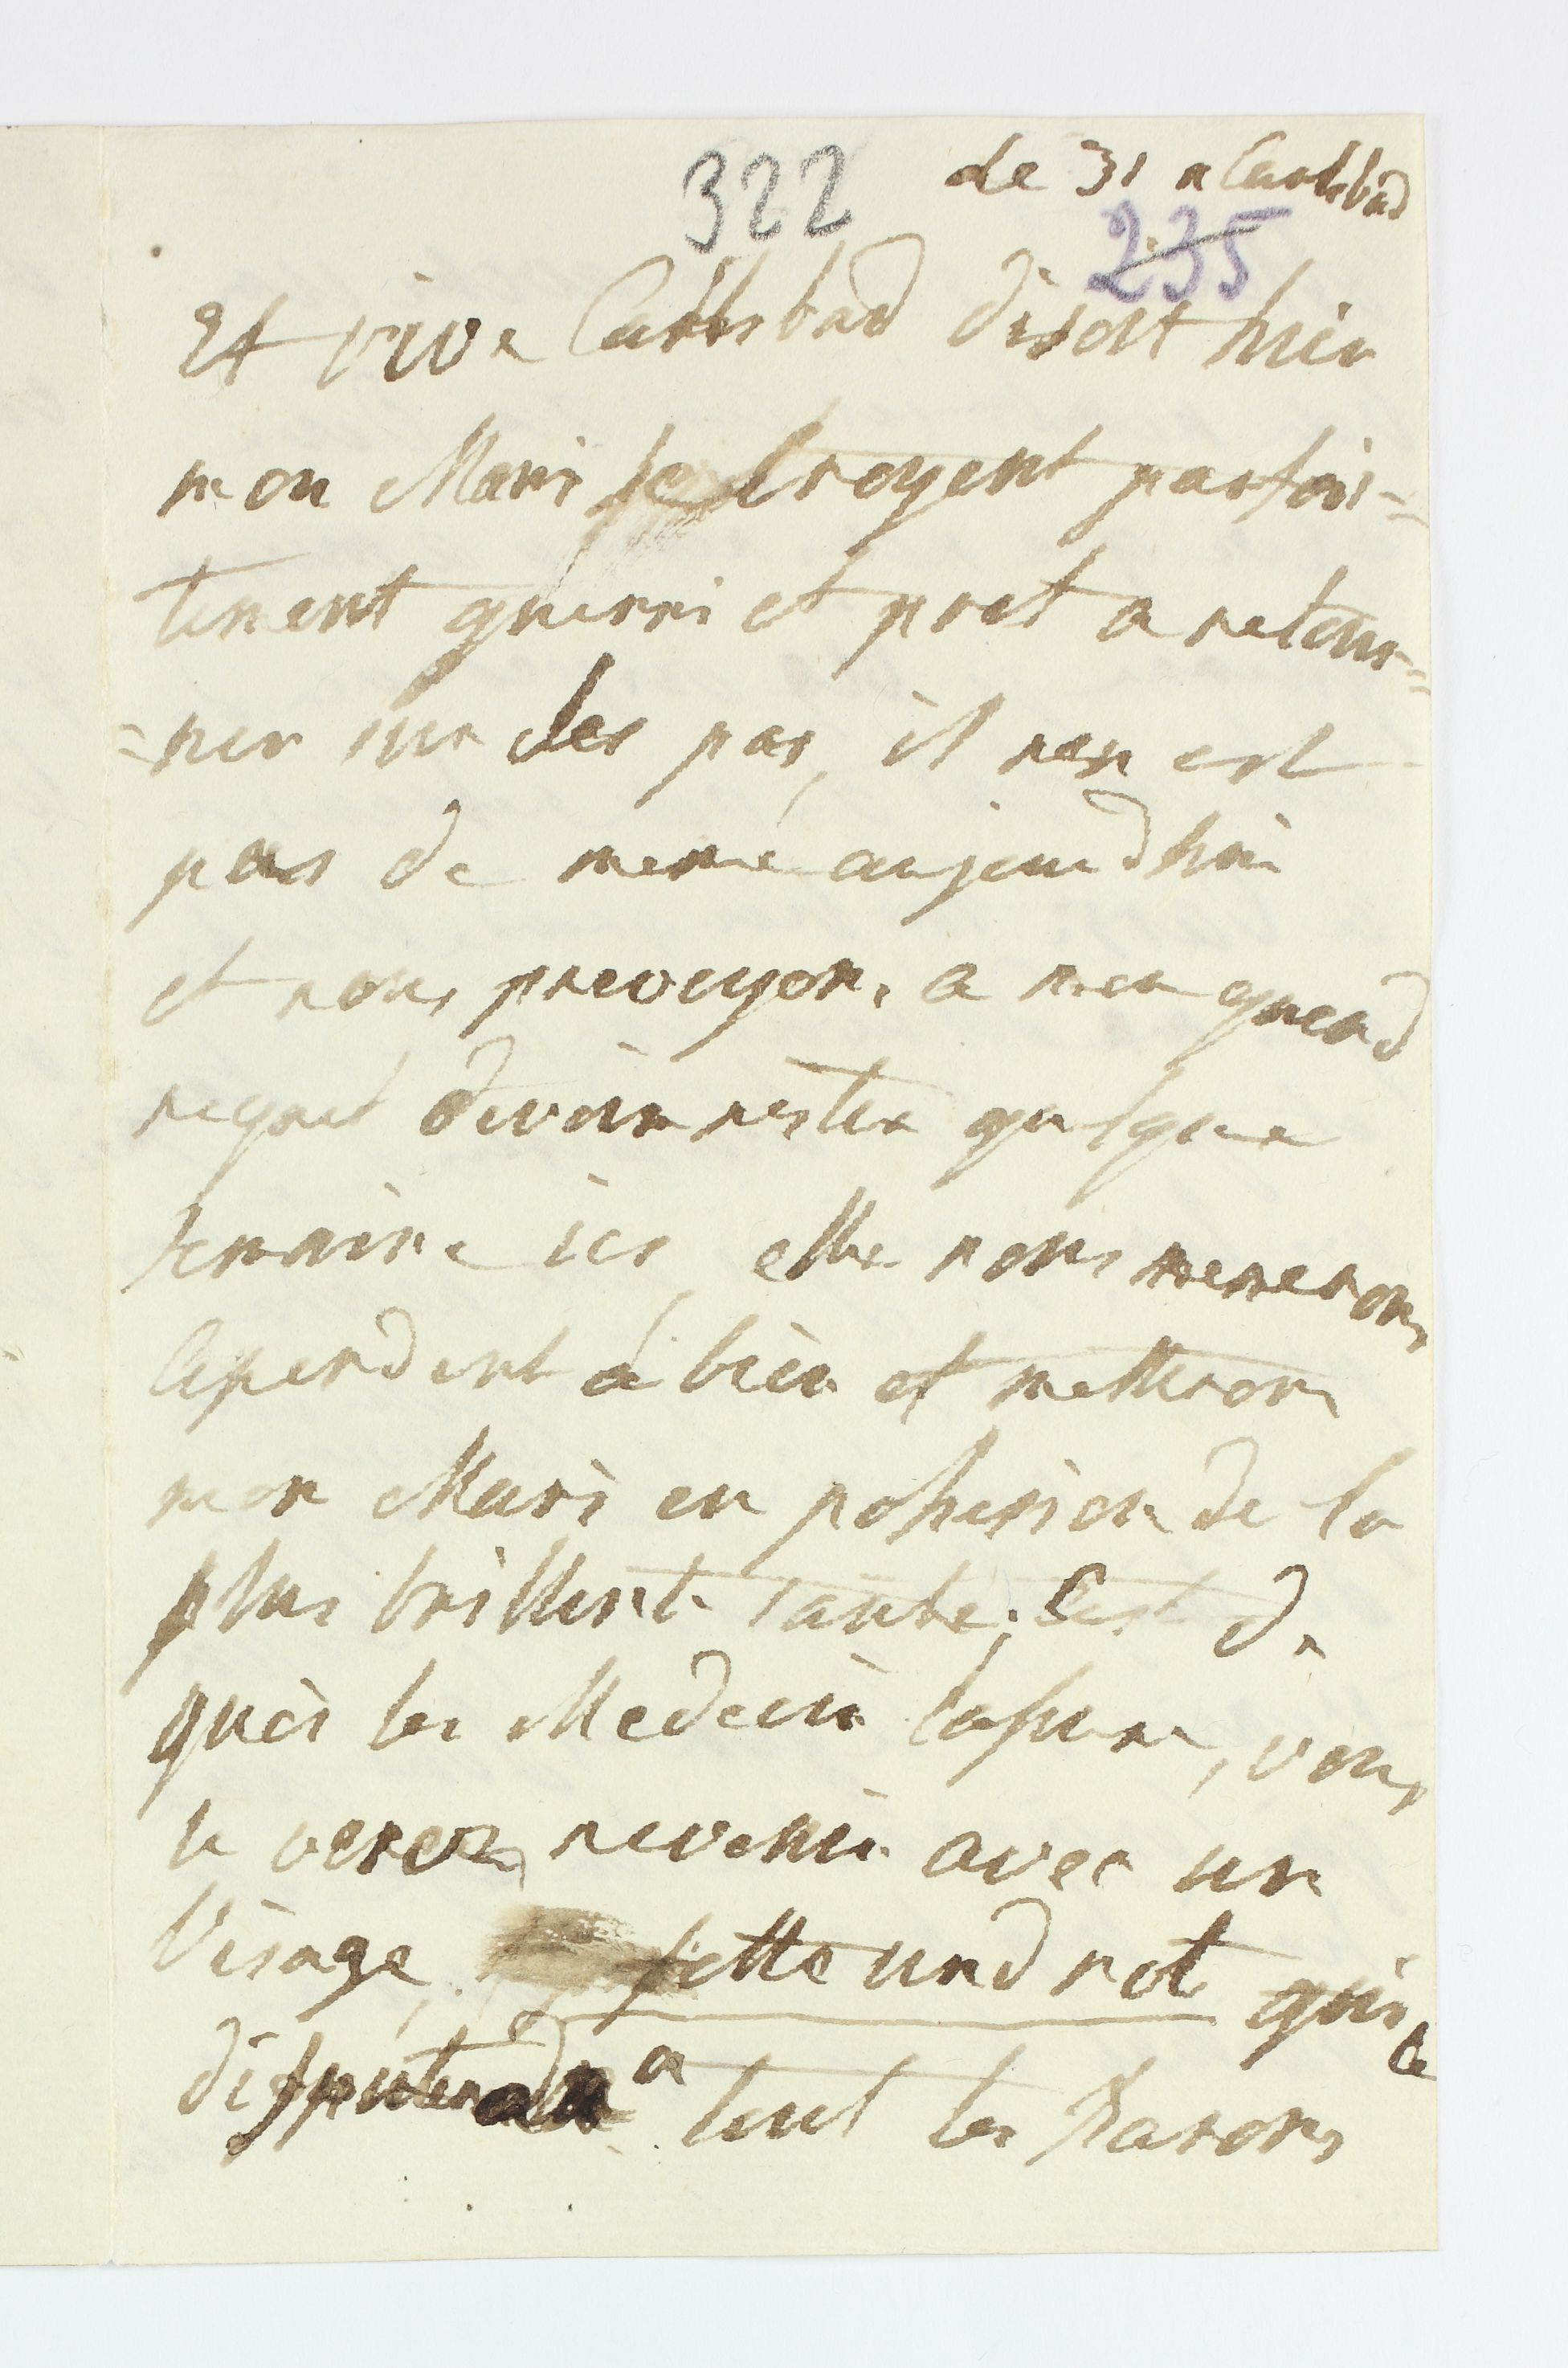 322 de 31 a Carlsbad
235
Et vive Carlsbad disoit hier
mon Mari se croyent parfai-
tement guerri et pret a retour-
=ner sur ses pas, il nen est
pas de meme aujourdhui
et nous prevoyons a mon grand
regret devoir rester quelque
semaine ici, elle nous meneron
cependent á bien et metteron
mon Mari en possesion de la
plus brillente santé; Cest de
quoi les Medecin lassure, vous
le verez revenir avec un
Visage, fette und rot qui le
disputera a tout les Barons